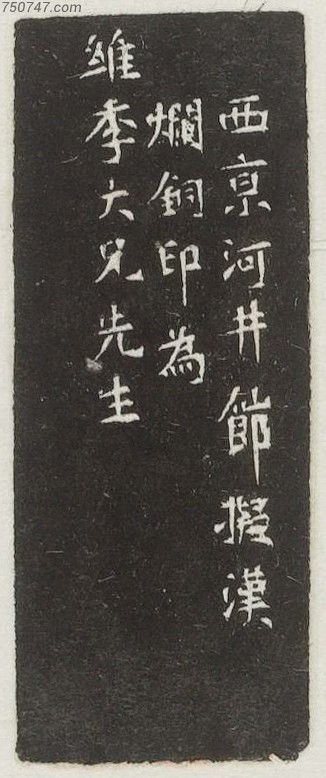 750747.com
西京河井節擬漢
爛銅印為
維季大兄先生